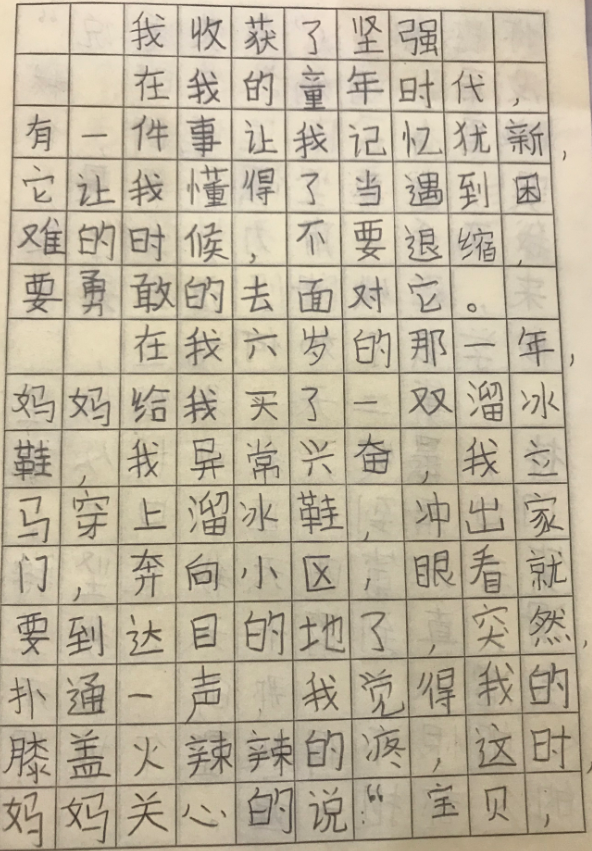 我收获了坚强
在我的童年时代，
有一件事让我记忆犹新，
它让我懂得了当遇到困
难的时候，不要退缩，
要勇敢的去面对它。
在我六岁的那一年，
妈妈给我买了一双溜冰
鞋，我异常兴奋，我立
马穿上溜冰鞋，冲出家
门，奔向小区，眼看就
要到达目的地了，突然，
扑通一声，我觉得我的
膝盖火辣辣的疼，这时，
妈妈关心的说：“宝贝，